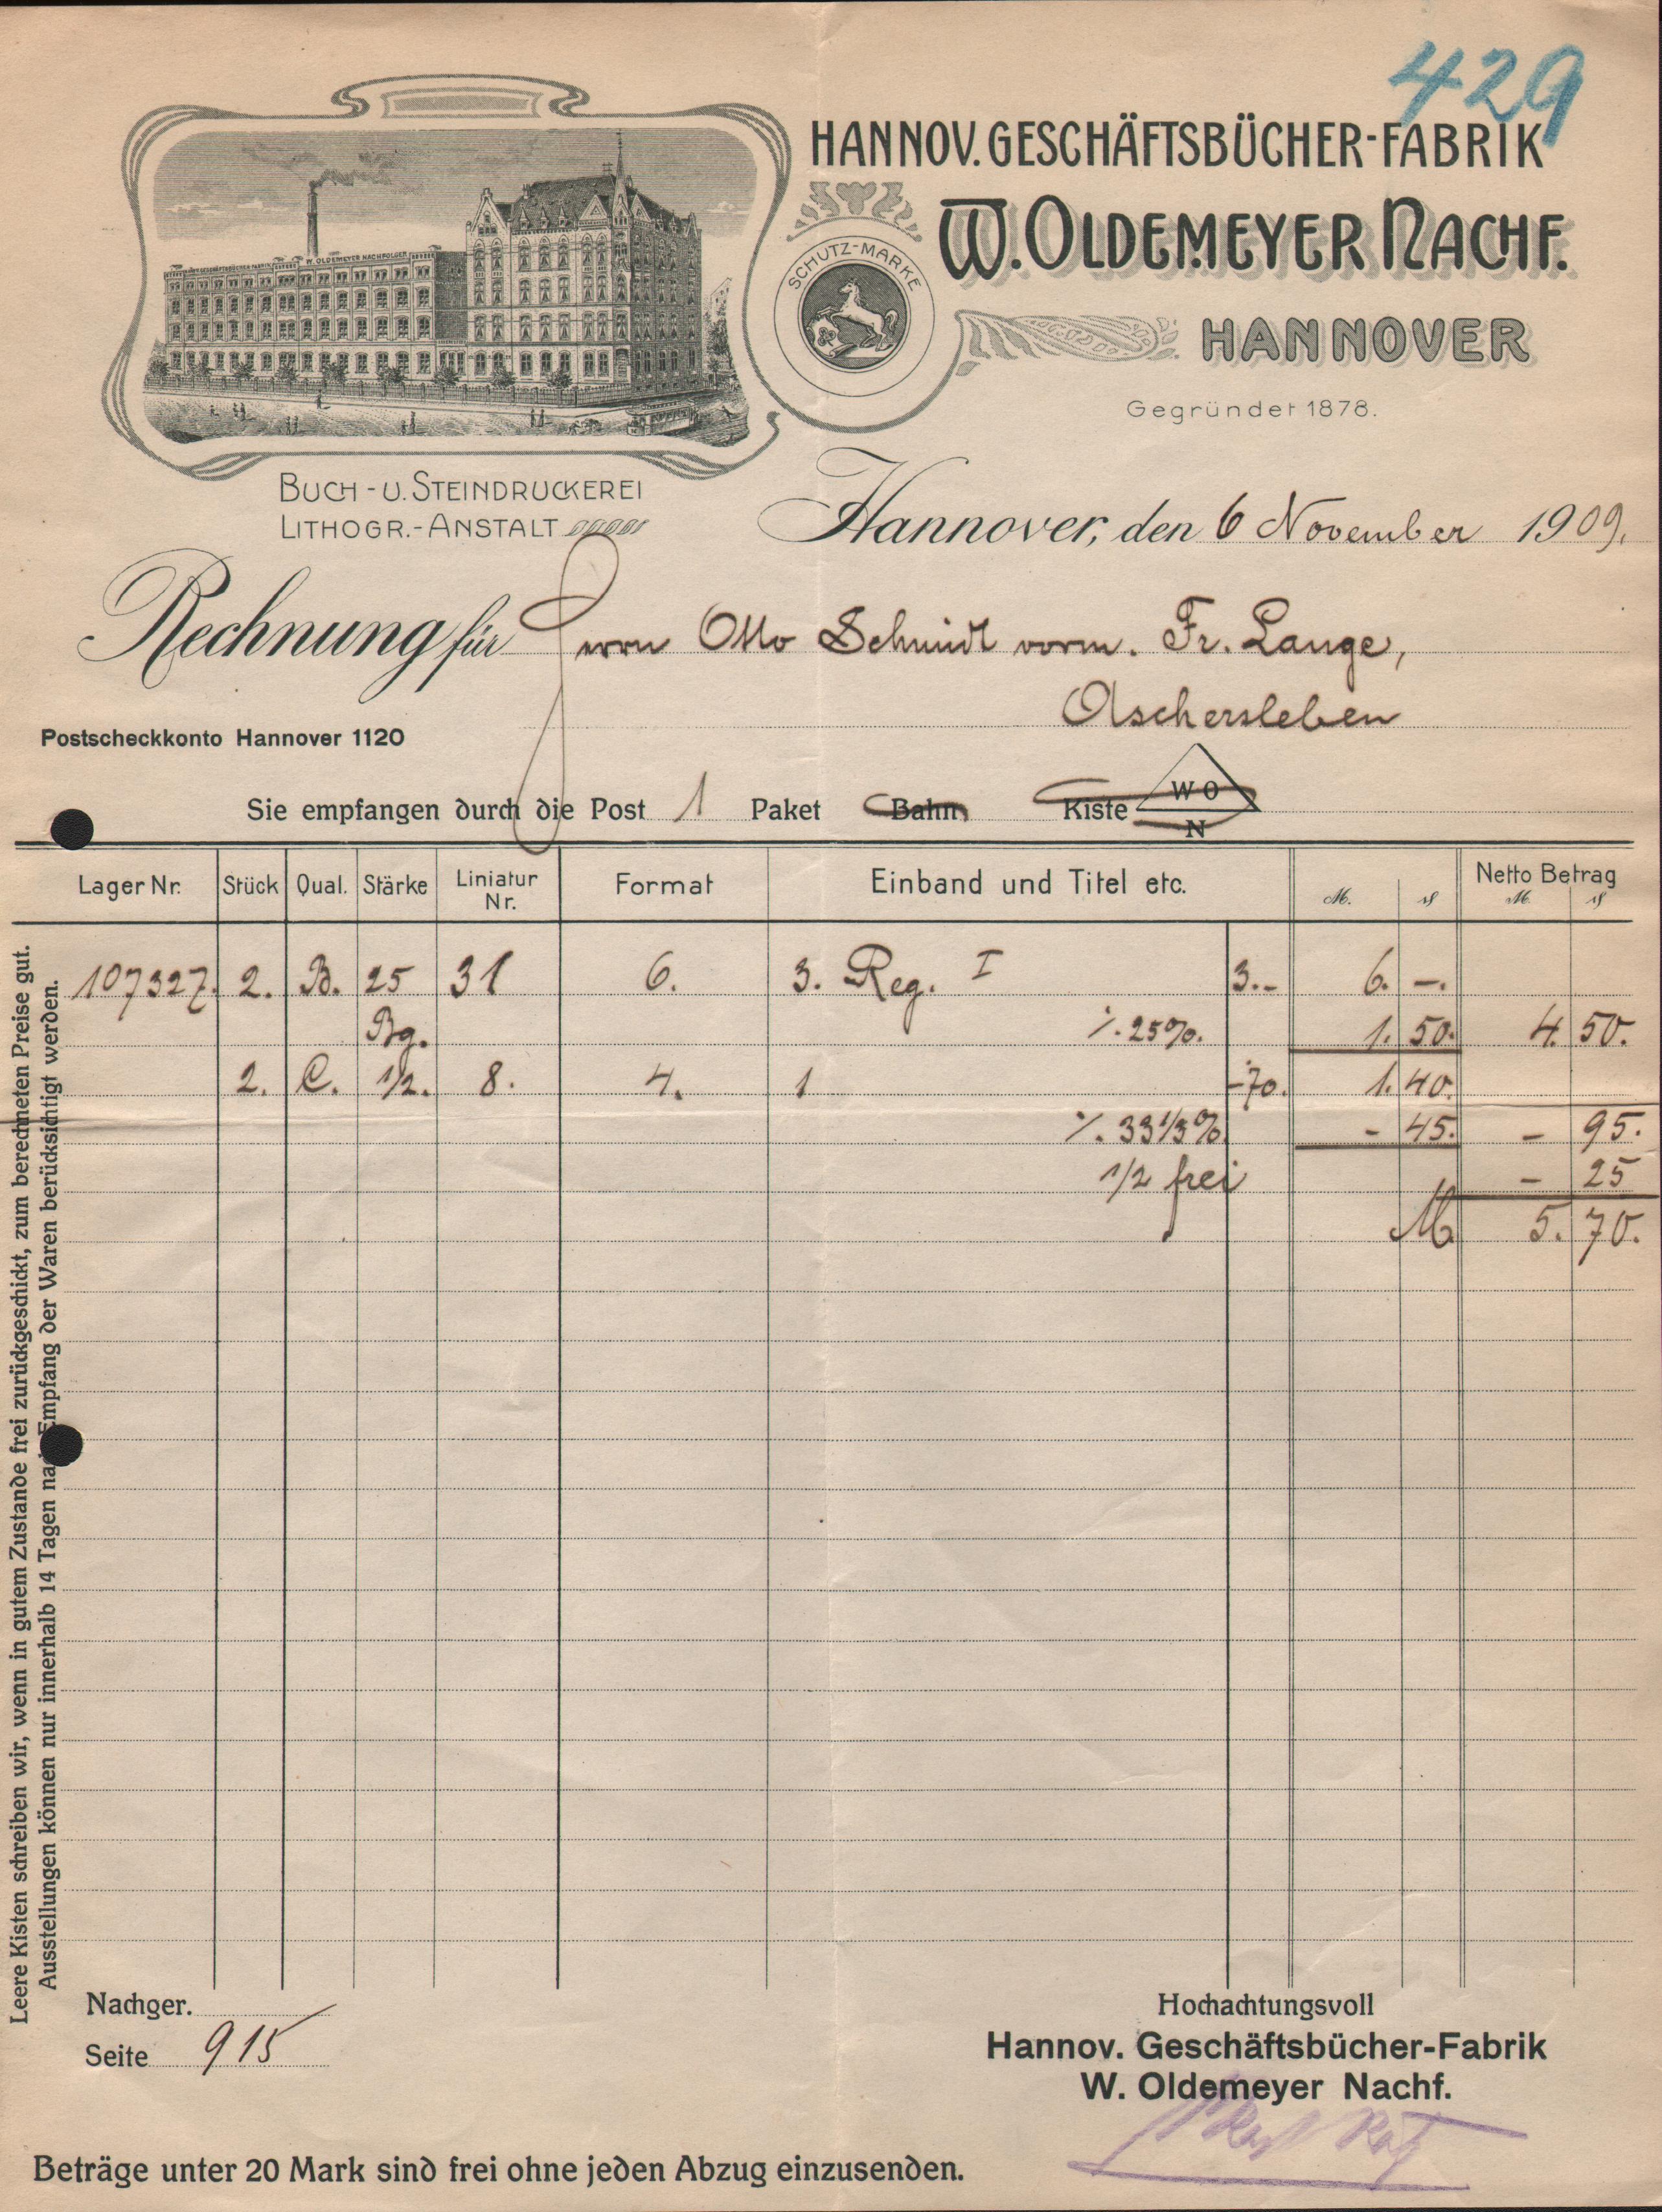 429
HANNOV. GESCHÄFTSBÜCHER-FABRIK
W. OLDEMEYER NACHF.
HANNOVER
Gegründet 1878.
SCHUTZ-MARKE
W. OLDEMEYER NACHFOLGER
BUCH- U. STEINDRUCKEREI
LITHOGR.-ANSTALT
Hannover, den 6 November 1909.
Rechnung für Herrn Otto Schmidt vorm. Fr. Lange,
Aschersleben
Postscheckkonto Hannover 1120
Sie empfangen durch die Post 1 Paket Bahn Kiste W O N
Lager Nr. Stück Qual. Stärke Liniatur Nr. Format Einband und Titel etc. M. ₰ Netto Betrag M. ₰
107327. 2. B. 25 31 6. 3. Reg. I 3.- 6. -.
Bg. ·/. 25%. 1. 50. 4. 50.
2. C. 1/2. 8. 4. 1 -70. 1. 40.
·/. 33 1/3% - 45. - 95.
1/2 frei - 25
M. 5. 70.
Leere Kisten schreiben wir, wenn in gutem Zustande frei zurückgeschickt, zum berechneten Preise gut.
Ausstellungen können nur innerhalb 14 Tagen nach Empfang der Waren berücksichtigt werden.
Nachger.
Seite 915
Hochachtungsvoll
Hannov. Geschäftsbücher-Fabrik
W. Oldemeyer Nachf.
Beträge unter 20 Mark sind frei ohne jeden Abzug einzusenden.